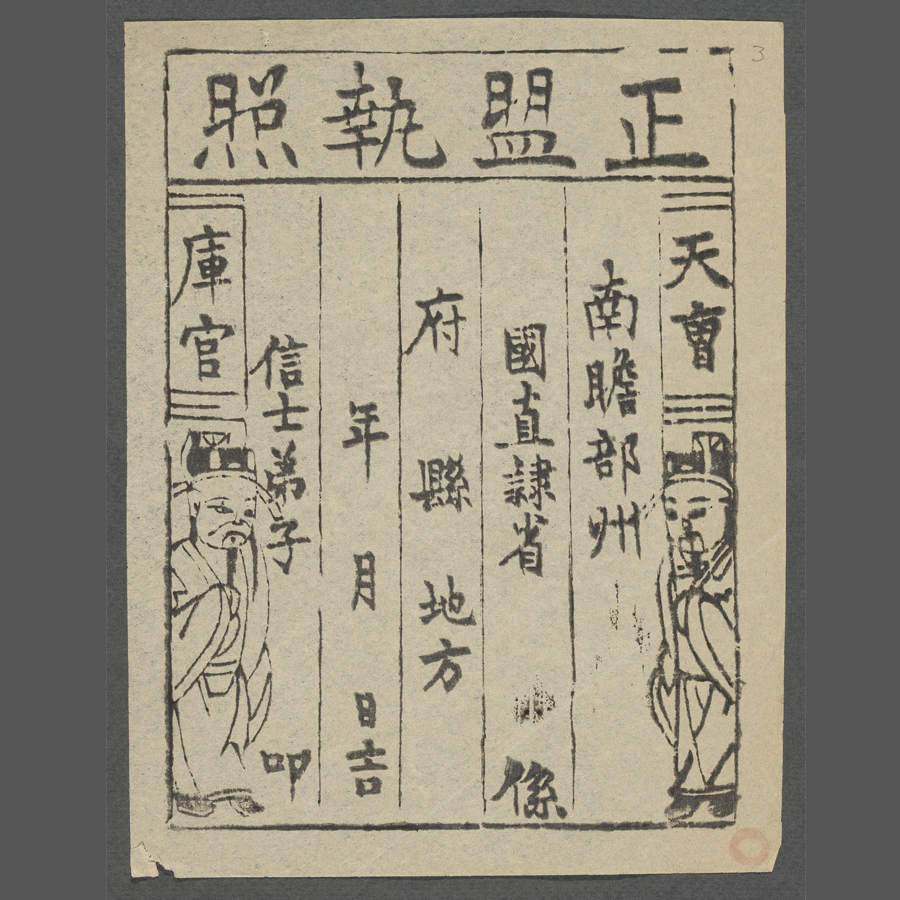 正盟執照
天曹
南瞻部州
國直隸省 係
府 縣 地方
年 月 日吉
信士弟子 叩
庫官
3